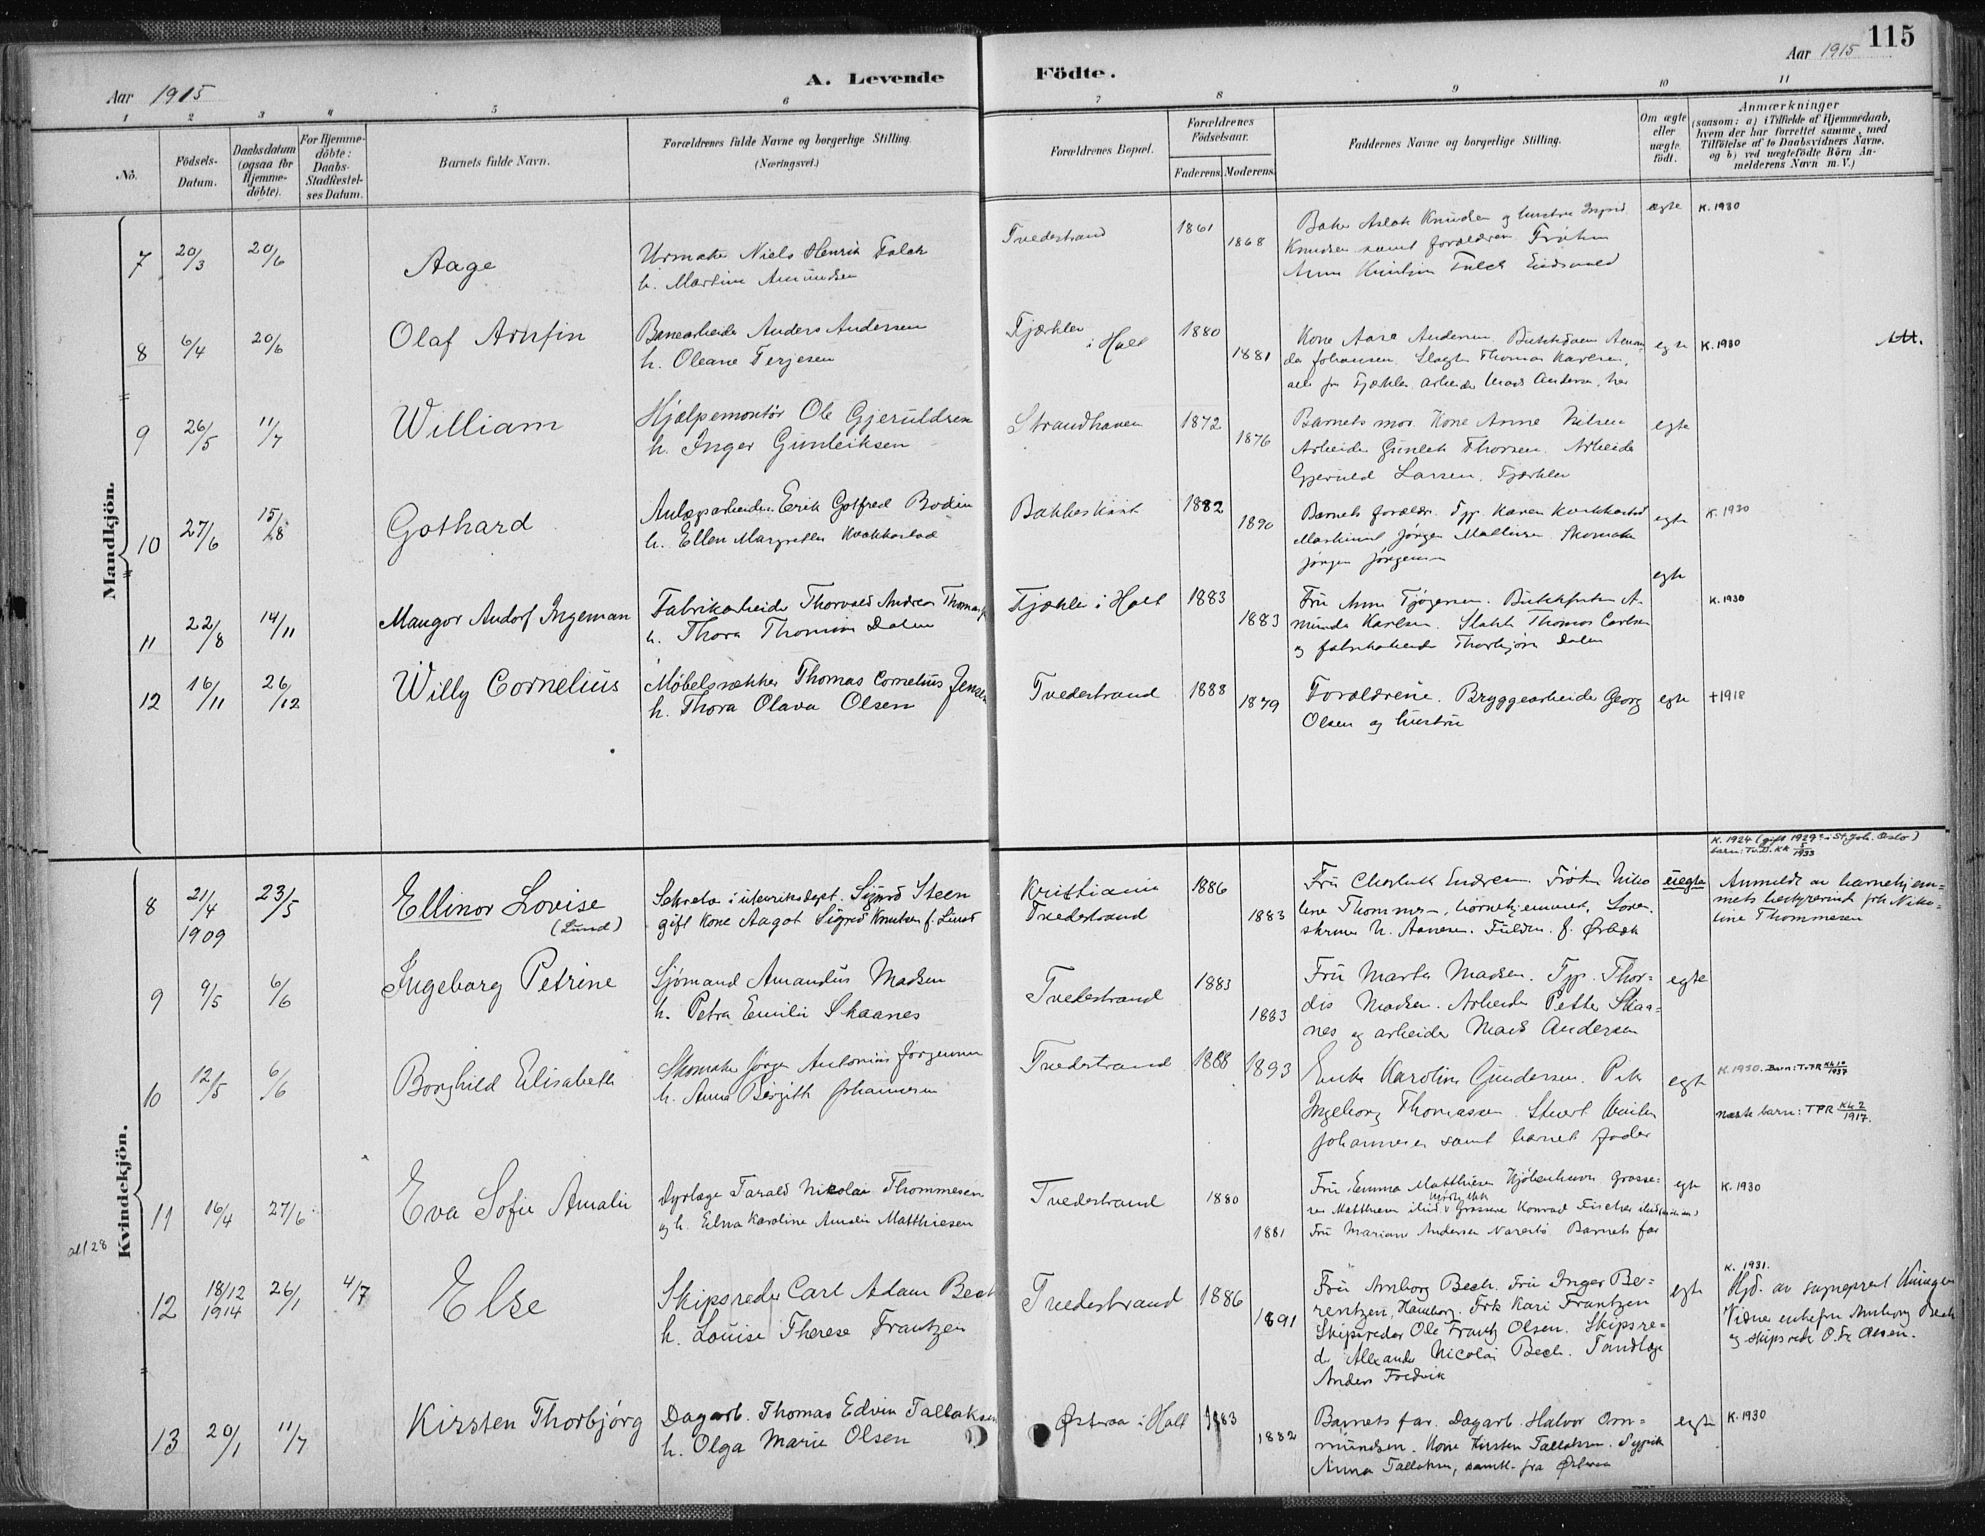 115
Aar 1915
A. Levende
Födte.
Aar 1915
1 2 3 4 5 6 7 8 9 10 11
No.
Födsels-
Datum.
Daabsdatum
(ogsaa for
Hjemme-
döbte).
For Hjemme-
döbte:
Daabs-
Stadfæstel-
ses Datum.
Barnets fulde Navn.
Forældrenes fulde Navne og borgerlige Stilling.
(Næringsvei.)
Forældrenes Bopæl.
Forældrenes
Födselsaar.
Faderens. Moderens.
Faddernes Navne og borgerlige Stilling.
Om ægte
eller
uægte
födt.
Anmærkninger
(saasom: a) i Tilfælde af Hjemmedaab,
hvem der har forrettet samme, med
Tilföielse af to Daabsvidners Navne,
og b) ved uægtefödte Börn An-
melderens Navn m. V.)
Mandkjön.
7 20/3 20/6 Aage
Urmaker Niels Henrik Falck
h. Martine Amundsen
Tvedestrand 1861 1868
Baker Aslak Knudsen og hustru Ingrid
Knudsen samt forældrene Frøken
Anna Kristine Falck Eidsvold
ægte K. 1930
8 6/4 20/6 Olaf Arnfin
Banearbeider Anders Andersen
h. Oleane Terjesen
Fjærkler
i Holt 1880 1881
Kone Aase Andersen Butikdame Aman-
da Johansen, Slagter Thomas Karlsen,
alle fra Fjærkler, arbeider Mads Andersen, her
egte K. 1930
9 26/5 11/7 William
Hjælpemontør Ole Gjeruldsen
h. Inger Gunleiksen
Strandhaven 1872 1876
Barnets mor. Kone Anne Nilsen
Arbeider Gunlek Thorsen. Arbeider
Gjeruld Larsen, Fjærkler
egte
10 27/6 15/8 Gothard
Anlægsarbeider Erik Gotfred Bodin
h. Ellen Margrethe Kvakkestad
Bakkeskaat 1882 1890
Barnets forældre. Tjp. Karen Kvakkestad
Maskinist Jørgen Mathisen Skomaker
Jørgen Jørgensen
egte K. 1930
11 22/8 14/11 Mangor Andorf Ingeman
Fabrikarbeider Thorvald Andreas Thomas
h. Thora Thomine Dalen
Fjækler i Holt 1883 1883
Fru Anna Tjøgersen. Butikfrøken A-
manda Karlsen. Slakter Thomas Carlsen
og fabrikarbeider Thorbjørn Dalen
egte K. 1930
12 16/11 26/12 Willy Cornelius
Møbelsnekker Thomas Cornelius Jensen
h. Thora Olava Olsen
Tvedestrand 1888 1879
Forældrene. Bryggearbeider Georg
Olsen og hustru
egte †1918
Kvindekjön.
8 21/4 1909 23/5 Ellinor Lovise
(Lund)
Sekretær i utenriksdept. Sigurd Steen
gift Kone Aagot Sigrid Knutsen f. Lund
Kristiania
Tvedestrand 1886 1883
Fru Charlotte Endresen Frøken Niko-
line Thommesen, børnehjemmet, Soren-
skriver H. Aanesen. Fuldm. f. Ørbæk
uegte
K. 1924 (gift 1929 i St. Joh. Oslo)
barn: Tv.D. KK 5/1933
Anmeldt av barnehjem-
mets bestyrerinde frk Niko-
line Thommesen
9 9/5 6/6 Ingeborg Petrine
Sjømand Amandus Madsen
h. Petra Emilie Skaanes
Tvedestrand 1883 1883
Fru Marta Madsen. Tjp. Thor-
dis Madsen. Arbeider Petter Skaa-
nes og arbeider Mads Andersen
egte
10 12/5 6/6 Borghild Elisabeth
Skomaker Jørgen Antonius Jørgensen
h. Anna Birgith Johannesen
Tvedestrand 1888 1893
Enke Karoline Gundersen. Pike
Ingeborg Thomassen. Stuert
Johannesen samt barnets fader
egte
K. 1930. Barn: T.P.R Kk 10/1937
næste barn: TPR KK 2/1917.
11 16/4 27/6 Eva Sofie Amalie
Dyrlæge Tarald Nikolai Thommesen
og h. Edna Karoline Amalie Matthiesen
Tvedestrand 1880 1881
Fru Emma Matthiesen Kjøbenhavn Grosse-
rer Matthiesen ilsted Grosserer Konrad Fischer ilsted
Fru Mariane Andersen Narestø Barnets far
egte K. 1930
alt 28
12 18/12 1914 26/1 4/7 Else
Skipsreder Carl Adam Bech
h. Louise Therese Frantzen
Tvedestrand 1886 1891
Fru Amborg Bech. Fru Inger Be-
rentzen, Hamborg. Frk Kari Frantzen
Skipsreder Ole Frantz Olsen. Skipsre-
der Alexander Nicolai Bech. Tandlæge
Anders Fredvik
egte
K. 1931.
Hjd. av sogneprest
Vidner enkefru Amborg Bech
og skipsreder O. Fr. Olsen.
13 20/1 11/7 Kirsten Thorbjørg
Dagarb. Thomas Edvin Tallaksen
h. Olga Marie Olsen
Østeraa i Holt 1883 1882
Barnets far. Dagarb. Halvor Om-
mundsen. Kone Kirsten Tallaksen. Sypike
Anna Tallaksen, samtl. fra Østeraa
egte K. 1930